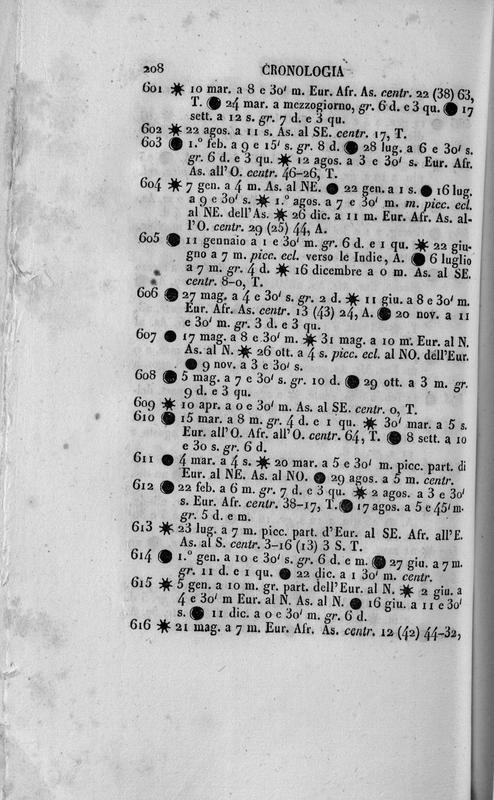 208 CRONOLOGIA
601 ✷ 10 mar. a 8 e 30' m. Eur. Afr. As. centr. 22 (38) 63,
T. ● 24 mar. a mezzogiorno, gr. 6 d. e 3 qu. ● 17
sett. a 12 s. gr. 7 d. e 3 qu.
602 ✷ 22 agos. a 11 s. As. al SE. centr. 17, T.
603 ● 1.º feb. a 9 e 15' s. gr. 8 d. ● 28 lug. a 6 e 30' s.
gr. 6 d. e 3 qu. ✷ 12 agos. a 3 e 30' s. Eur. Afr.
As. all'O. centr. 46-26, T.
604 ✷ 7 gen. a 4 m. As. al NE. ● 22 gen. a 1 s. ● 16 lug.
a 9 e 30' s. ✷ 1.º agos. a 7 e 30' m. m. picc. ecl.
al NE. dell'As. ✷ 26 dic. a 11 m. Eur. Afr. As. al-
l'O. centr. 29 (25) 44, A.
605 ● 11 gennaio a 1 e 30' m. gr. 6 d. e 1 qu. ✷ 22 giu-
gno a 7 m. picc. ecl. verso le Indie, A. ● 6 luglio
a 7 m. gr. 4 d. ✷ 16 dicembre a 0 m. As. al SE.
centr. 8-0, T.
606 ● 27 mag. a 4 e 30' s. gr. 2 d. ✷ 11 giu. a 8 e 30' m.
Eur. Afr. As. centr. 13 (43) 24, A. ● 20 nov. a 11
e 30' m. gr. 3 d. e 3 qu.
607 ● 17 mag. a 8 e 30' m. ✷ 31 mag. a 10 m. Eur. al N.
As. al N. ✷ 26 ott. a 4 s. picc. ecl. al NO. dell'Eur.
● 9 nov. a 3 e 30' s.
608 ● 5 mag. a 7 e 30' s. gr. 10 d. ● 29 ott. a 3 m. gr.
9 d. e 3 qu.
609 ✷ 10 apr. a 0 e 30' m. As. al SE. centr. 0, T.
610 ● 15 mar. a 8 m. gr. 4 d. e 1 qu. ✷ 30' mar. a 5 s.
Eur. all'O. Afr. all'O. centr. 64, T. ● 8 sett. a 10
e 30 s. gr. 6 d.
611 ● 4 mar. a 4 s. ✷ 20 mar. a 5 e 30' m. picc. part. di
Eur. al NE. As. al NO. ● 29 agos. a 5 m. centr.
612 ● 22 feb. a 6 m. gr. 7 d. e 3 qu. ✷ 2 agos. a 3 e 30'
s. Eur. Afr. centr. 38-17, T. ● 17 agos. a 5 e 45' m.
gr. 5 d. e m.
613 ✷ 23 lug. a 7 m. picc. part. d'Eur. al SE. Afr. all'E.
As. al S. centr. 3-16 (13) 3 S. T.
614 ● 1.º gen. a 10 e 30' s. gr. 6 d. e m. ● 27 giu. a 7 m.
gr. 11 d. e 1 qu. ● 22 dic. a 1 30' m. centr.
615 ✷ 5 gen. a 10 m. gr. part. dell'Eur. al N. ✷ 2 giu. a
4 e 30' m Eur. al N. As. al N. ● 16 giu. a 11 e 30'
s. ● 11 dic. a 0 e 30' m. gr. 6 d.
616 ✷ 21 mag. a 7 m. Eur. Afr. As. centr. 12 (42) 44-32,